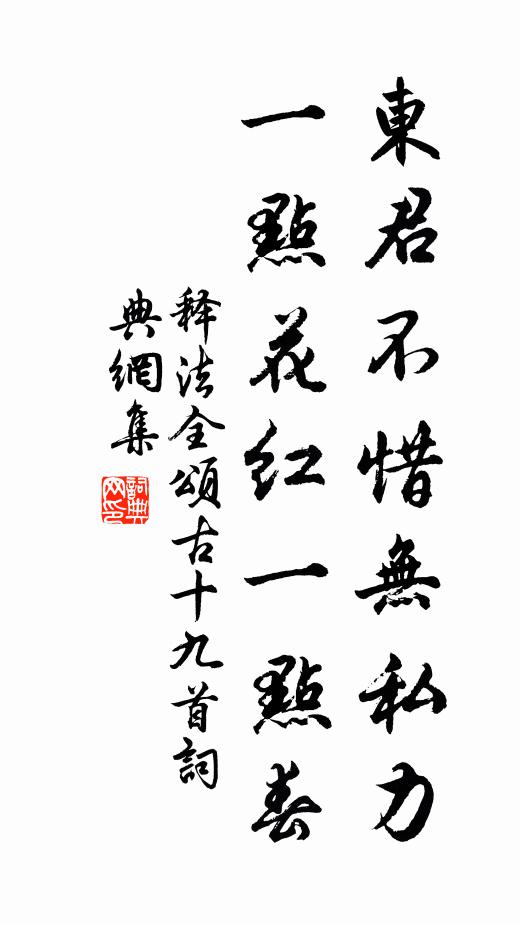 東君不惜無私力
一點花紅一點春
释法全頌古十九首詞
典網集
詞典网印